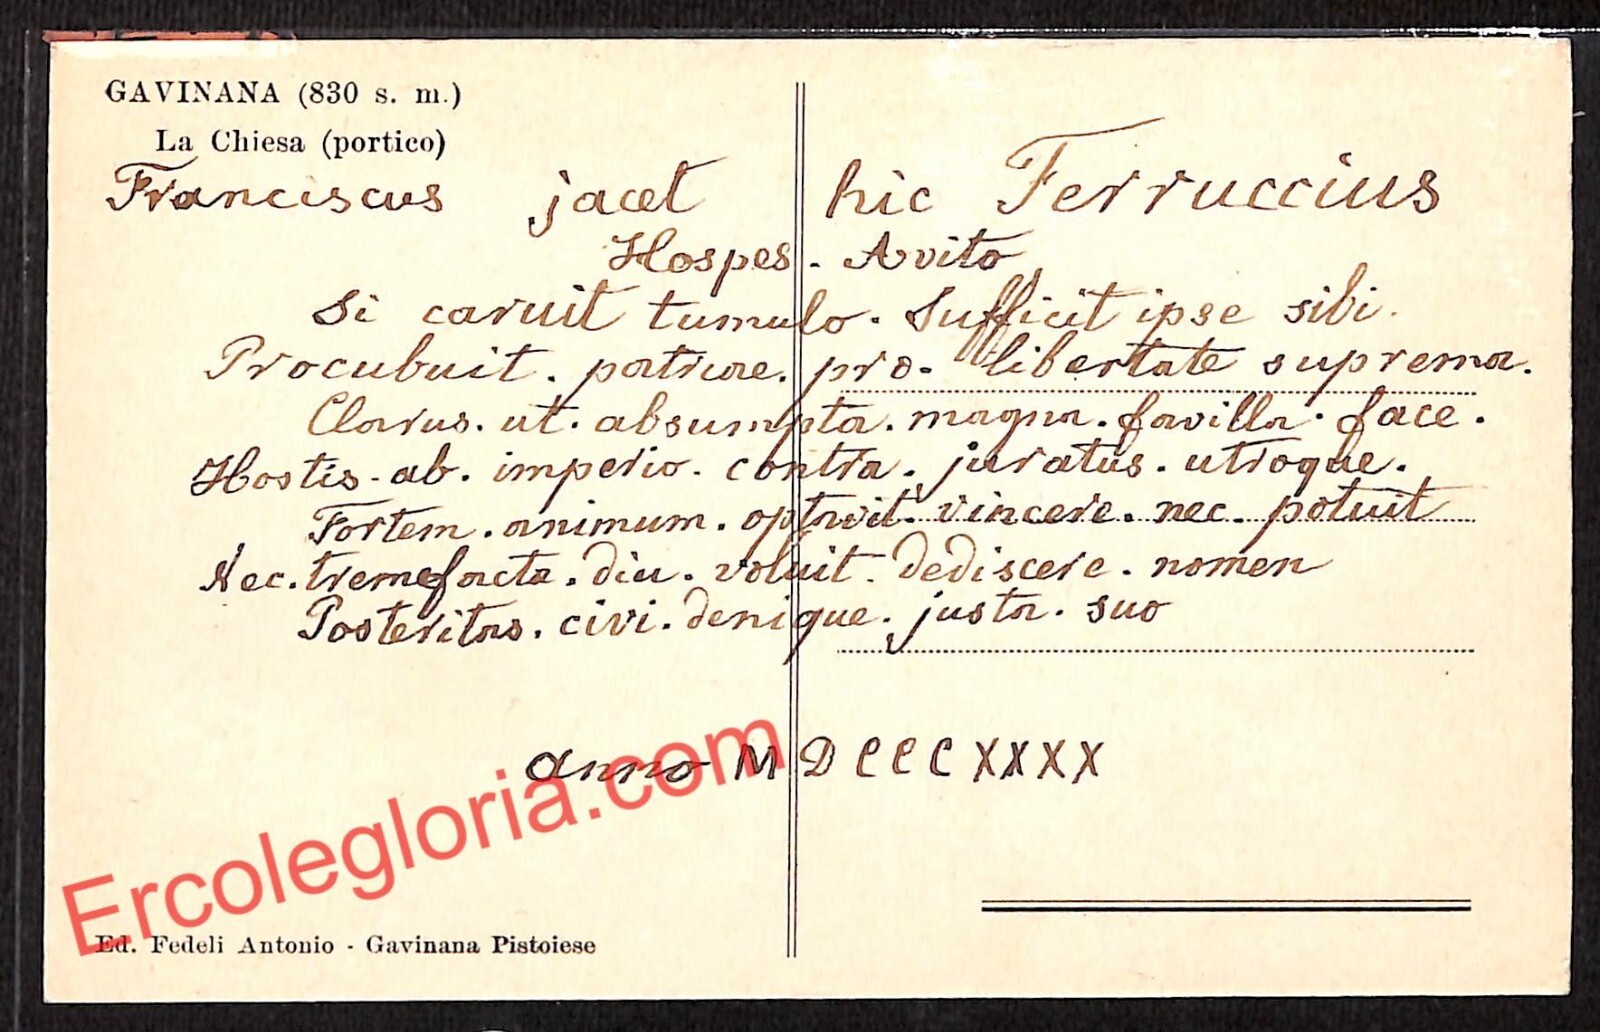 GAVINANA (830 s. m.)
La Chiesa (portico)
Franciscus jacet hic Ferruccius
Hospes. Avito
Si caruit tumulo. Sufficit ipse sibi.
Procubuit. patriae. pro. libertate suprema.
Clarus. ut. absumpta. magna. favilla. face.
Hostis. ab. imperio. contra. juratus. utroque.
Fortem. animum. optavit. vincere. nec. potuit
Nec. tremefacta. diu. voluit. dediscere. nomen
Posteritas. civi. denique. justa. suo
anno MDCCCXXXX
Ercolegloria.com
Ed. Fedeli Antonio - Gavinana Pistoiese